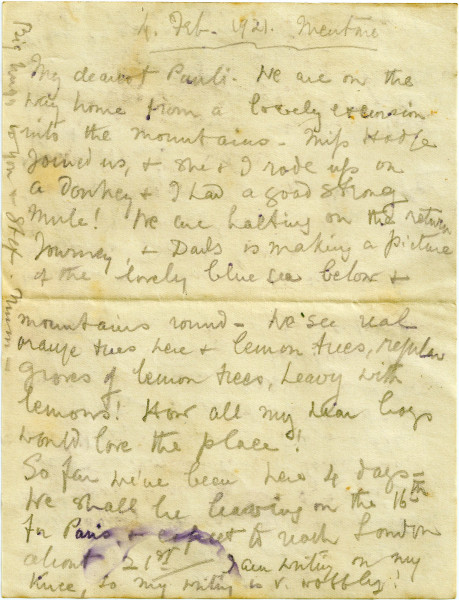 4. Feb. 1921. Mentone
My dearest Pauli. We are on the
way home from a lovely excursion
into the mountains - Miss Hodge
joined us, & she & I rode up on
a Donkey & I had a good strong
Mule! We are halting on the return
Journey, & Dads is making a picture
of the lovely blue sea below &
mountains round - We see real
orange trees here & lemon trees, regular
groves of lemon trees, heavy with
lemons! How all my dear boys
would love the place!
So far we've been here 4 days -
We shall be leaving on the 16th
for Paris, & expect to reach London
about 21st I am writing on my
knee, so my writing is v. wobbly!
Big hugs to you & Mum -